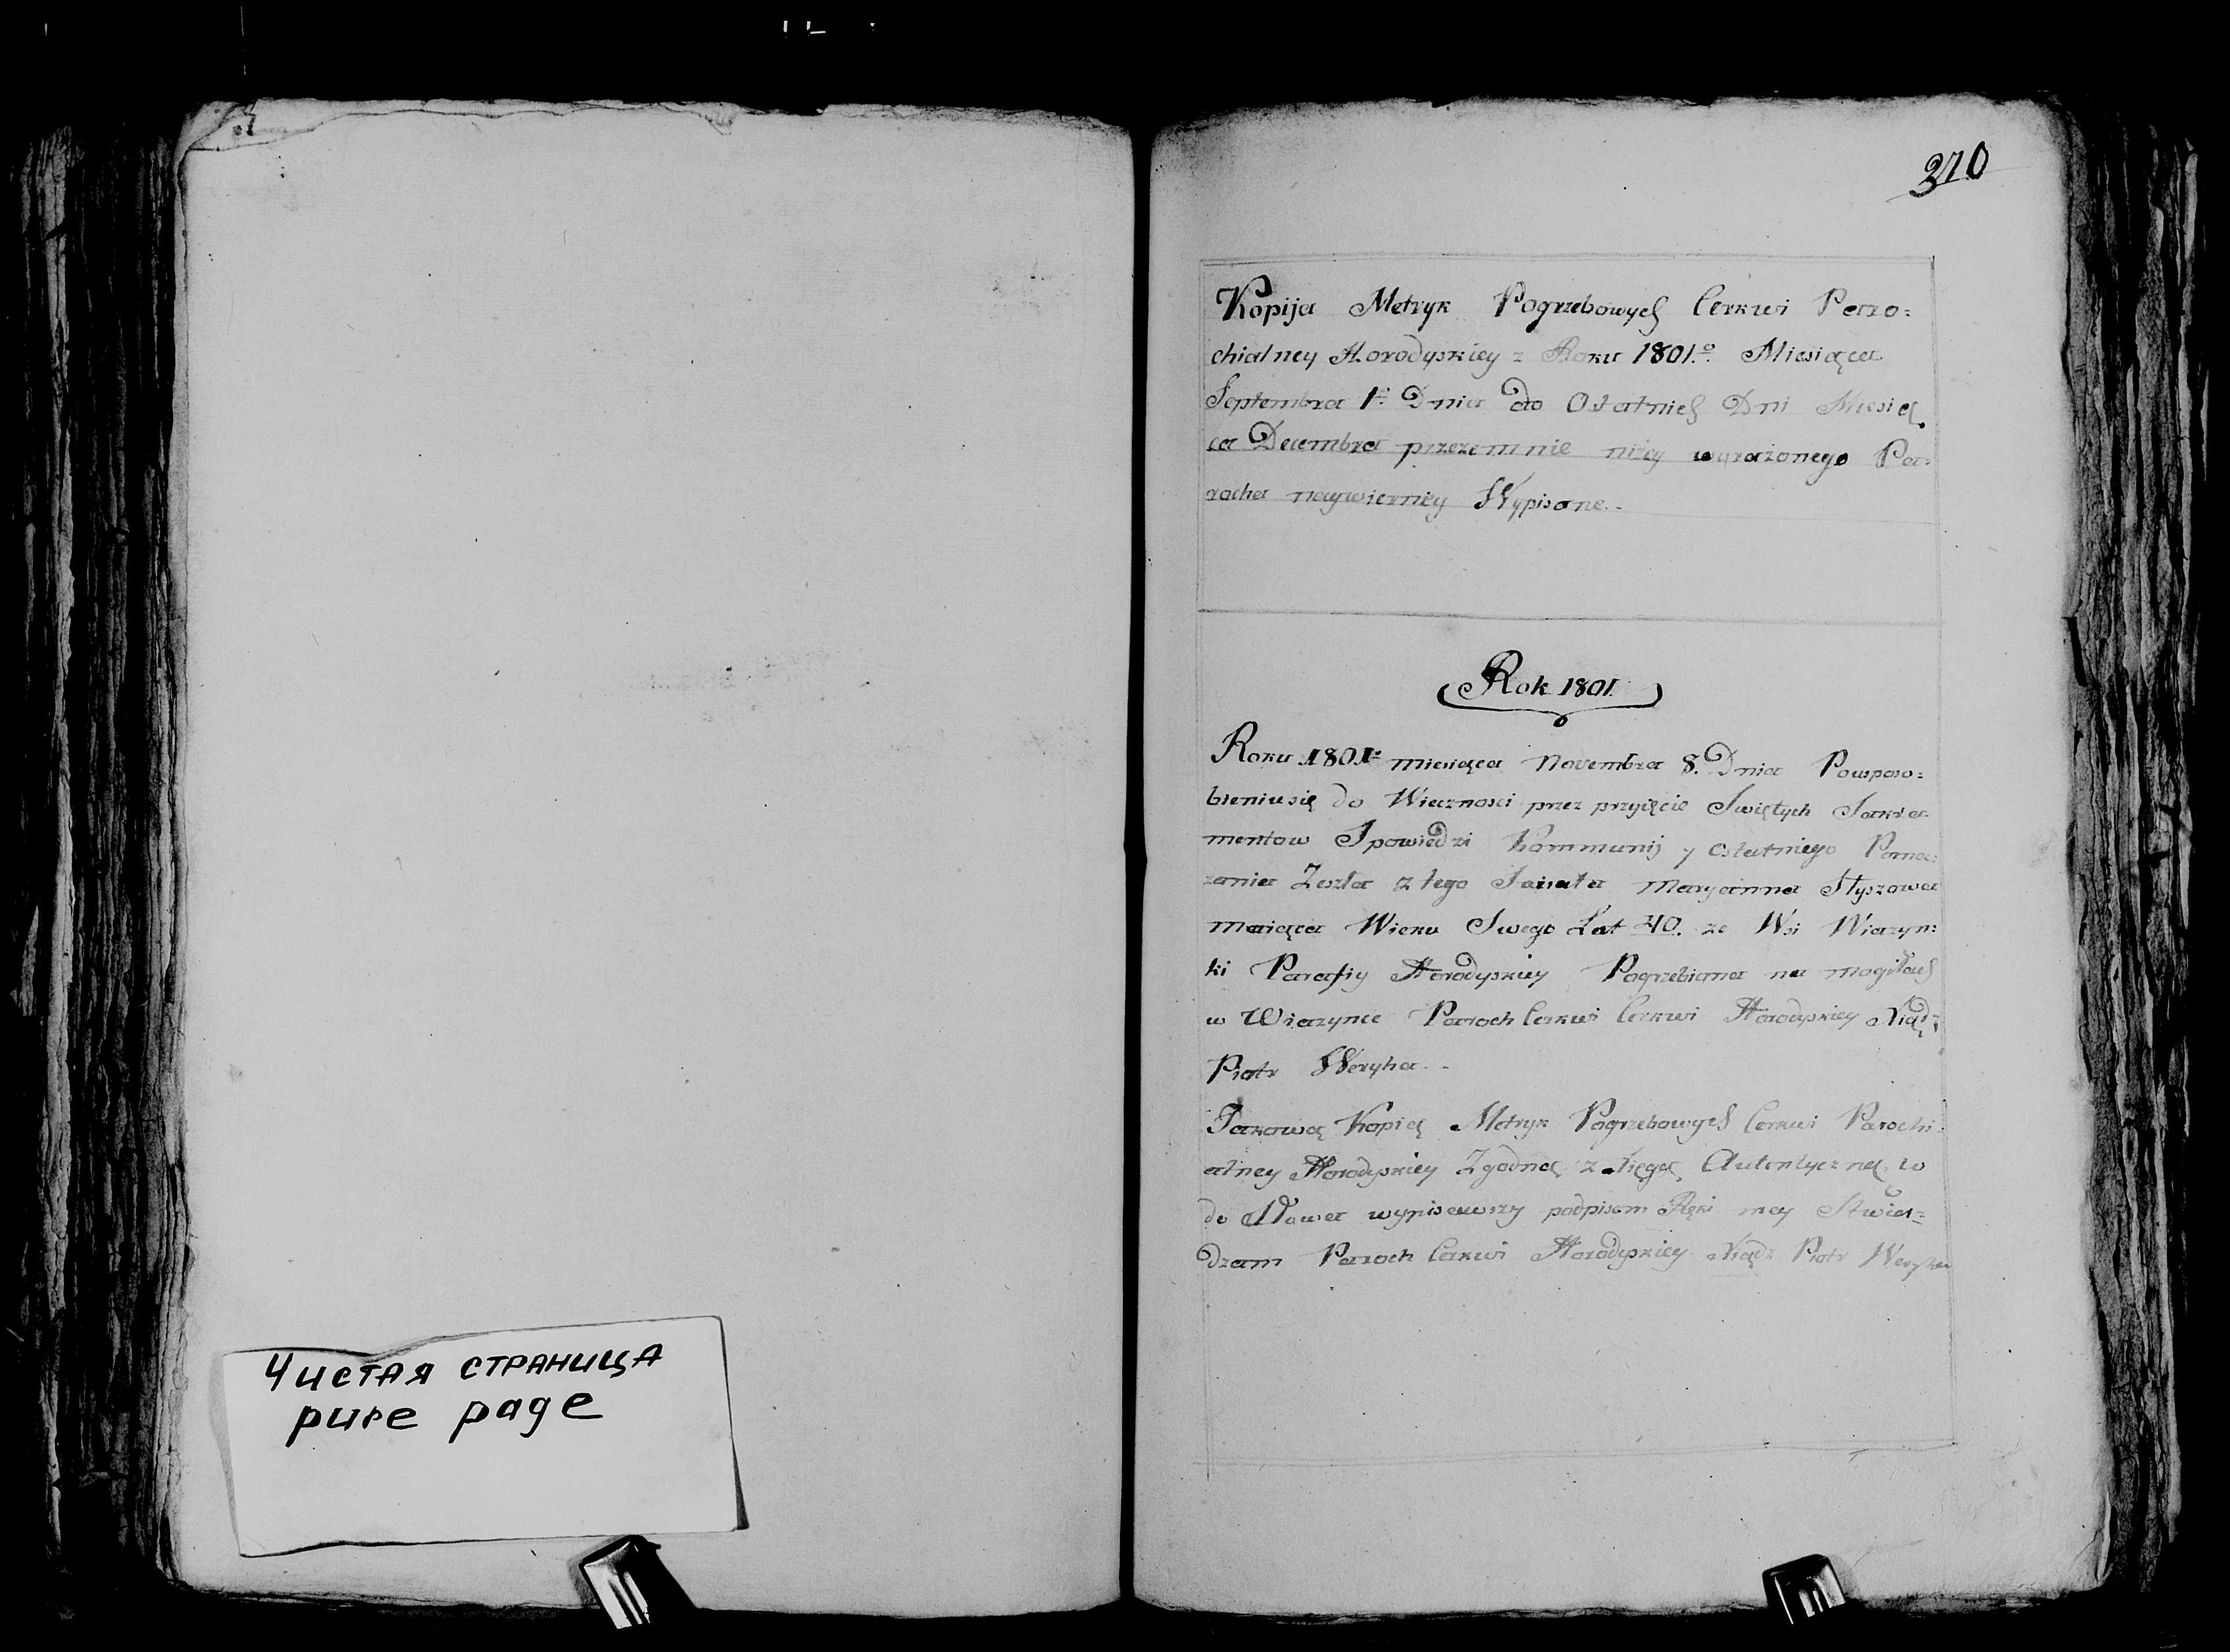 Чистая страница
pure page
310
Kopija Metryk Pogrzebowych Cerkwi Paro=
chialney Horodyskiey z Roku 1801.º Miesiąca
Septembra 1º Dnia do Ostatnich Dni Miesią
ca Decembra przezemnie niżey wyrażonego Pa=
rocha naywierniey Wypisane.
Rok 1801.
Roku 1801º miesiąca Novembra 8. Dnia Pousposo=
bieniu się do Wiecznosci przez przyięcie Swiętych Sakra
mentow Spowiedzi Kommunij y ostatniego Poma
zania Zeszła z tego Swiata Maryanna Styszowa
maiąca Wieku Swego Lat 40. ze Wsi Wiazyn=
ki Parafiy Horodyskiey Pogrzebiona na mogiłach
w Wiazynce Paroch Cerkwi Cerkwi Horodyskiey Xiądz
Piotr Weryha
Takową Kopię Metryk Pogrzebowych Cerkwi Parochi
alney Horodyskiey Zgodną z Xięgą Autentyczną, to
do wypisawszy podpisem Ręki mey Stwier=
dzam Paroch Cerkwi Horodyskiey Xiądz Piotr Weryha